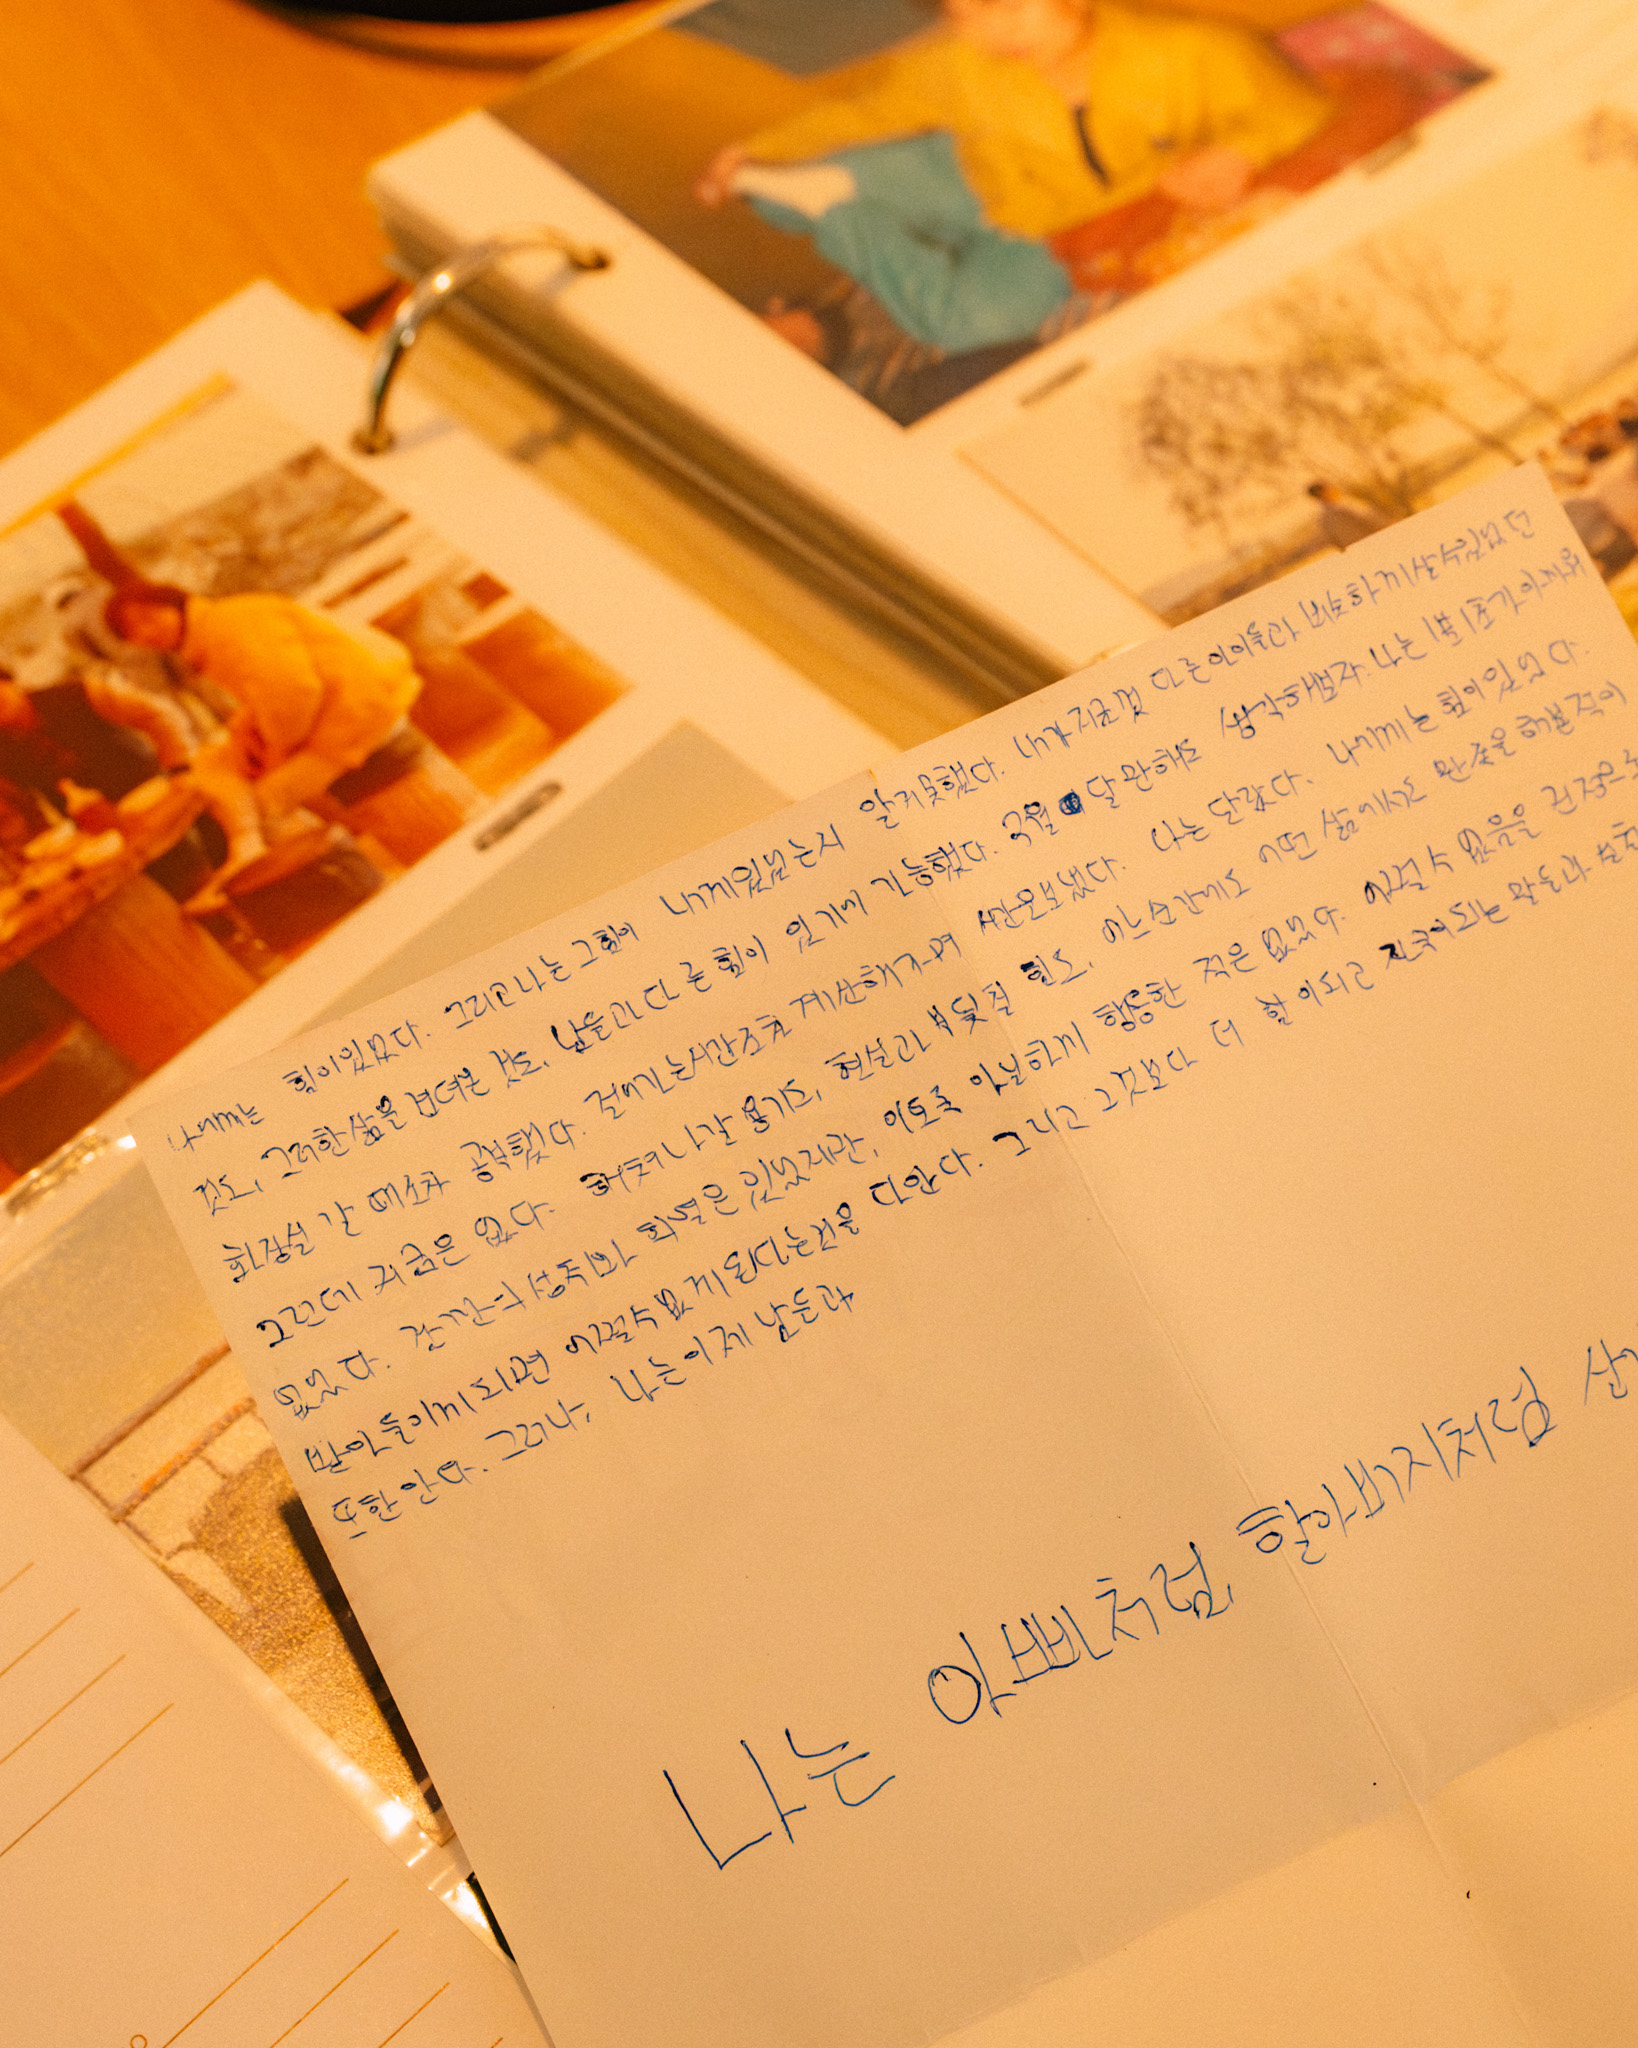 나에게는 힘이있었다. 그리고나는 그힘이 나에게있었는지 알지못했다. 내가 지금껏 다른아이들과 버텨살수있었던
것도, 그러한삶을 견뎌온 것도, 남들과 다른 힘이 있기에 가능했다. 3월 달만해도 생각해보자. 나는 1분1초가 아까워
화장실 갈 때조차 공부했다. 걸어가는시간조차 계산해가며 시간을보냈다. 나는 달랐다. 나에게는 힘이있었다.
그런데 지금은 없다. 헤쳐나갈 용기도, 현실과 부딪칠 힘도. 어느순간에도 어떤 삶에서도 만족을해본적이
없었다. 잠깐의 회복은 있었지만, 이토록 행동한 적은 없었다. 어쩔수 없음을 진정으로
받아들이게되면 어쩔수없게된다는것을 안다. 그리고 그것보다 더 한이되고 자극이되는 말들과
또한 안다. 그러나, 나는이제 남들과
나는 아빠처럼, 할아버지처럼